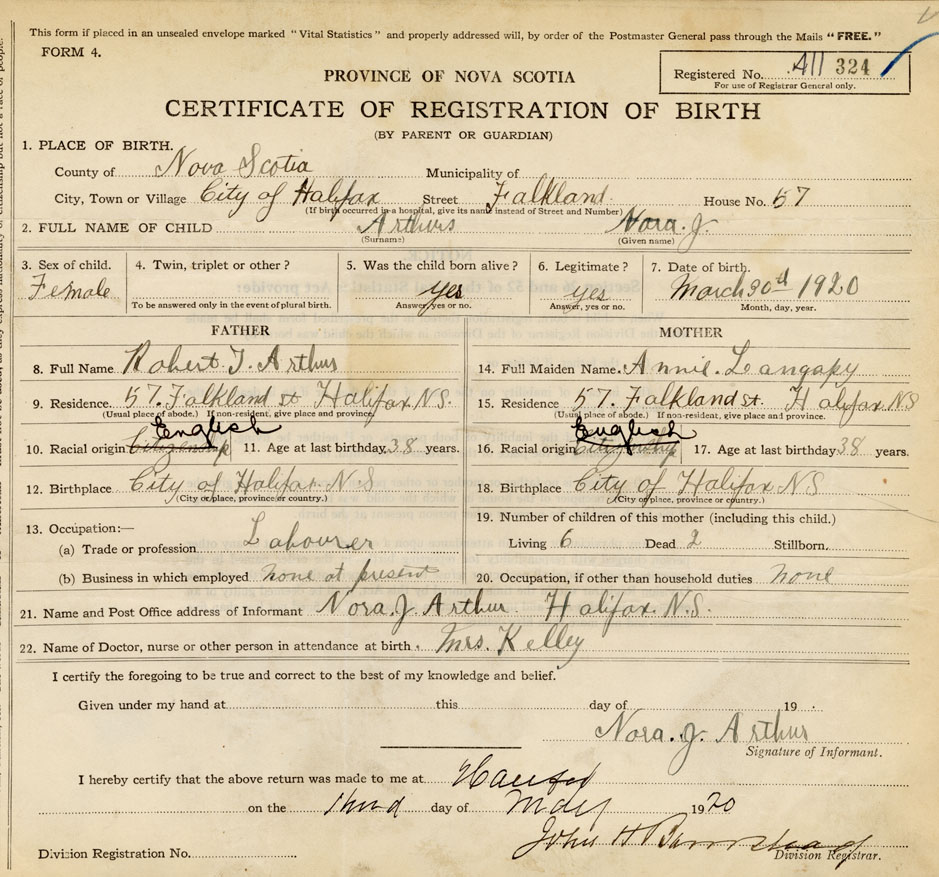 This form if placed in an unsealed envelope marked "Vital Statistics" and properly addressed will, by order of the Postmaster General pass through the Mails "FREE."
FORM 4.
PROVINCE OF NOVA SCOTIA
Registered No. A11 324
For use of Registrar General only.
CERTIFICATE OF REGISTRATION OF BIRTH
(BY PARENT OR GUARDIAN)
1. PLACE OF BIRTH.
County of Nova Scotia Municipality of
City, Town or Village City of Halifax Street Falkland House No. 57
(If birth occurred in a hospital, give its name instead of Street and Number)
2. FULL NAME OF CHILD Arthurs Nora. J.
(Surname) (Given name)
3. Sex of child. 4. Twin, triplet or other? 5. Was the child born alive? 6. Legitimate? 7. Date of birth.
Female yes yes March 30th 1920
To be answered only in the event of plural birth. Answer, yes or no. Answer, yes or no. Month, day, year.
FATHER MOTHER
8. Full Name Robert J. Arthur 14. Full Maiden Name. Annie.
9. Residence. 57. Falkland st Halifax N.S. 15. Residence. 57. Falkland st. Halifax NS
(Usual place of abode.) If non-resident, give place and province. (Usual place of abode.) If non-resident, give place and province.
English English
10. Racial origin Citizenship 11. Age at last birthday 38 years. 16. Racial origin Citizenship 17. Age at last birthday 38 years.
12. Birthplace City of Halifax N.S 18. Birthplace City of Halifax NS
(City or place, province or country.) (City or place, province or country.)
13. Occupation:— 19. Number of children of this mother (including this child.)
(a) Trade or profession Labourer Living 6 Dead 2 Stillborn
(b) Business in which employed none at present 20. Occupation, if other than household duties none
21. Name and Post Office address of Informant Nora. J. Arthur. Halifax. N.S.
22. Name of Doctor, nurse or other person in attendance at birth. Mrs. Kelley
I certify the foregoing to be true and correct to the best of my knowledge and belief.
Given under my hand at this day of 19
Nora. J. Arthur
Signature of Informant.
I hereby certify that the above return was made to me at
on the day of May 1920
John H
Division Registration No. Division Registrar.